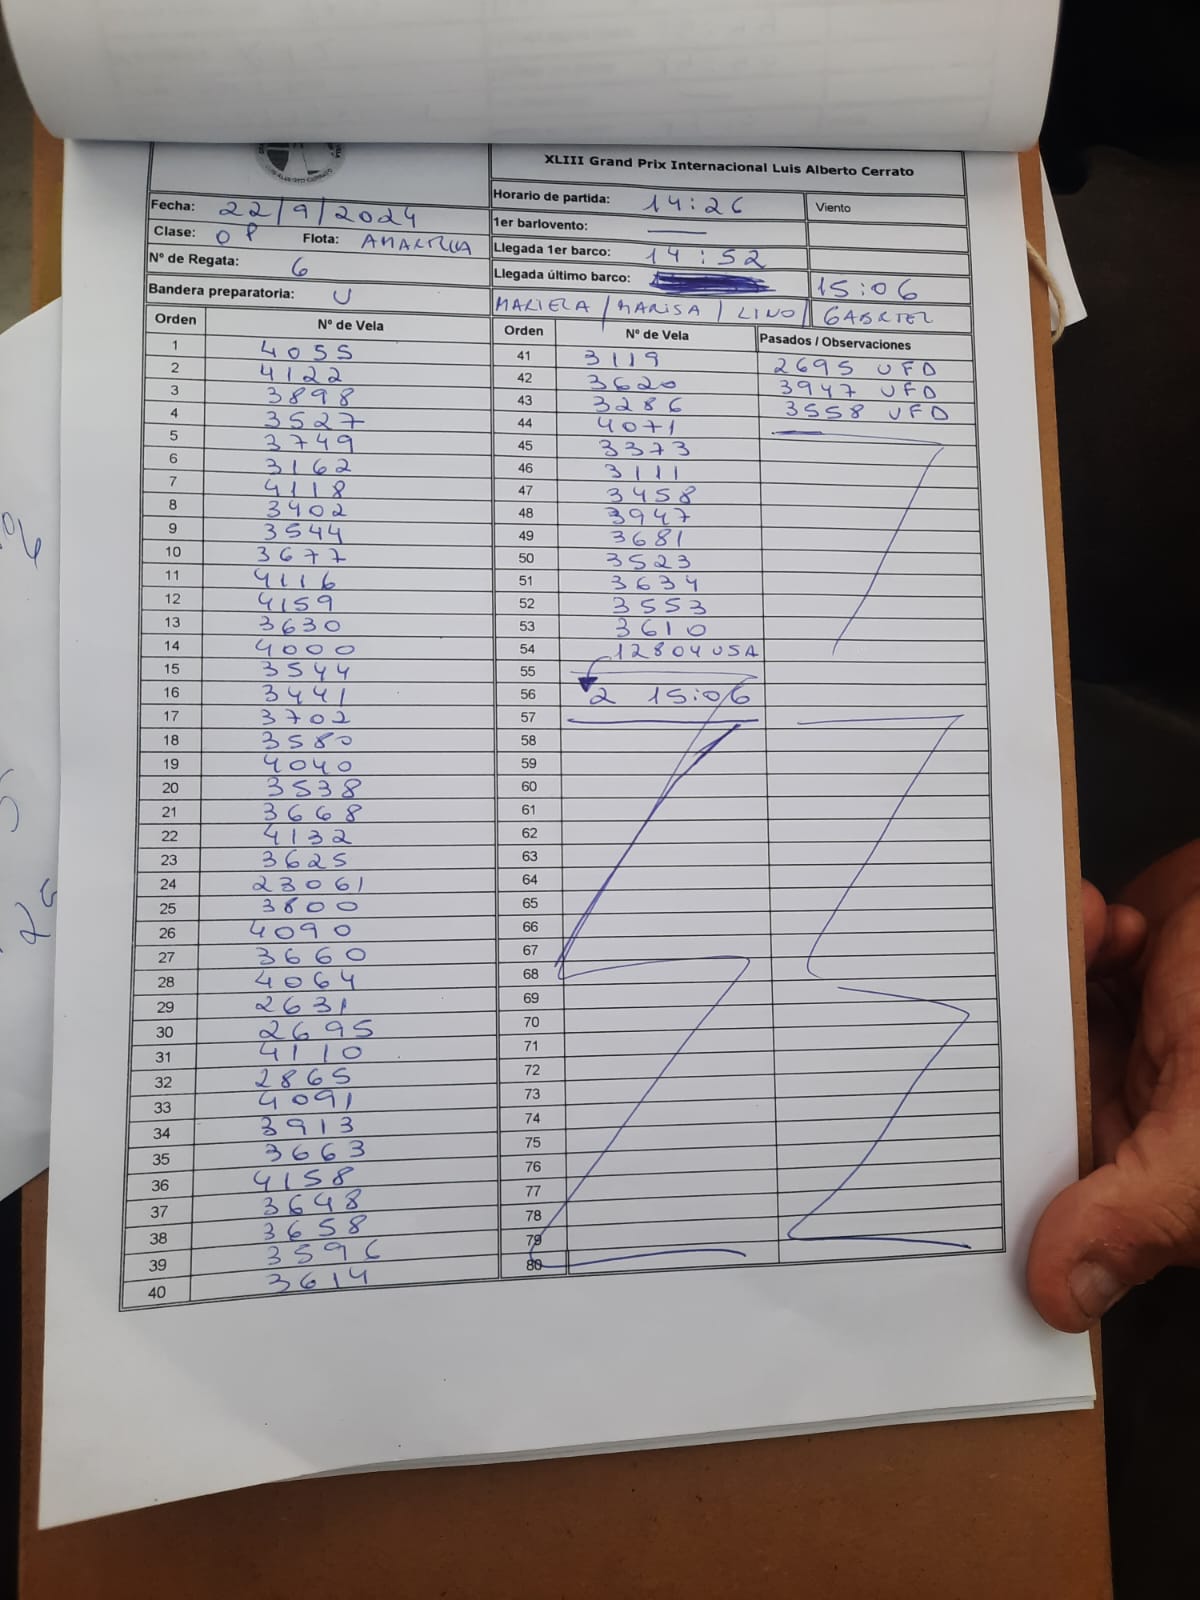 XLIII Grand Prix Internacional Luis Alberto Cerrato
Fecha: 22/9/2024
Horario de partida: 14:26 Viento
Clase: OP Flota: AMARILLA
1er barlovento: —
Llegada 1er barco: 14:52
Nº de Regata: 6
Llegada último barco: 15:06
Bandera preparatoria: U
MARIELA / MARISA / LINO / GABRIEL
Orden Nº de Vela
1 4055
2 4122
3 3898
4 3527
5 3749
6 3162
7 4118
8 3402
9 3544
10 3677
11 4116
12 4159
13 3630
14 4000
15 3544
16 3441
17 3702
18 3580
19 4040
20 3538
21 3668
22 4132
23 3625
24 23061
25 3800
26 4090
27 3660
28 4064
29 2631
30 2695
31 4110
32 2865
33 4091
34 3913
35 3663
36 4158
37 3648
38 3658
39 3596
40 3614
Orden Nº de Vela Pasados / Observaciones
41 3119 2695 UFD
42 3620 3947 UFD
43 3286 3558 UFD
44 4071
45 3373
46 3111
47 3458
48 3947
49 3681
50 3523
51 3634
52 3553
53 3610
54 12804 USA
55
56 2 15:06
57
58
59
60
61
62
63
64
65
66
67
68
69
70
71
72
73
74
75
76
77
78
79
80